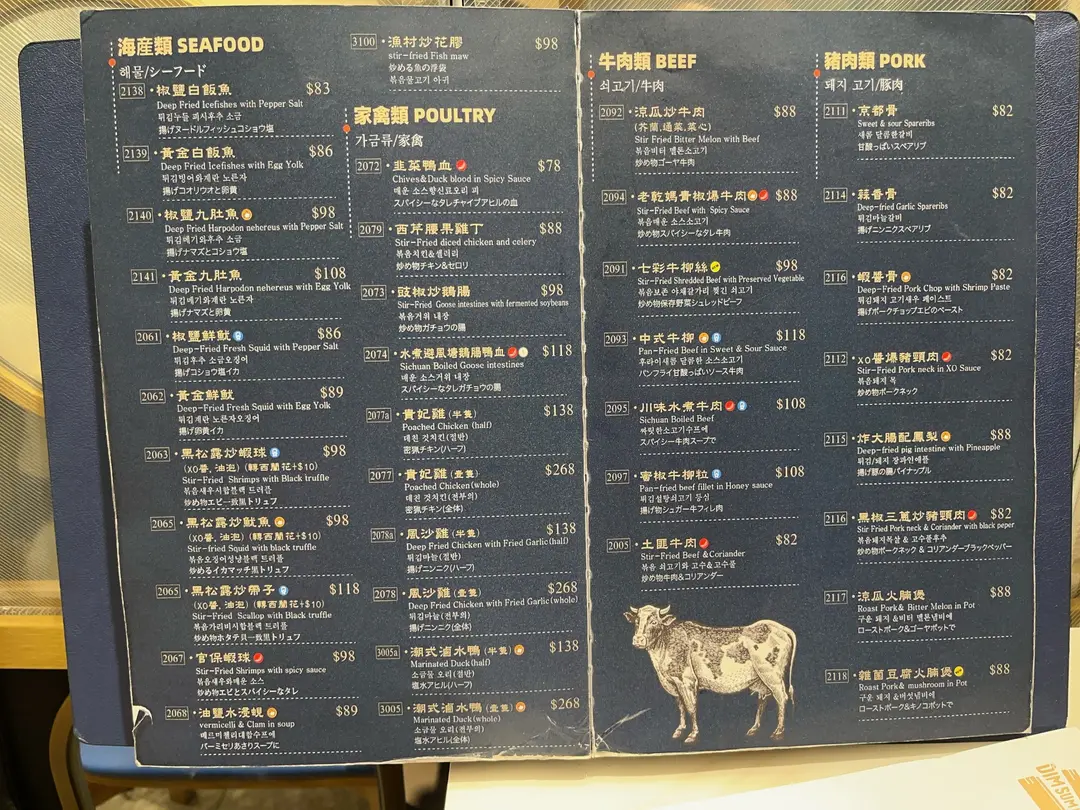 海產類 SEAFOOD
해물/シーフード
2138 · 椒鹽白飯魚 $83
Deep Fried Icefishes with Pepper Salt
튀김누들 피시후추 소금
揚げヌードルフィッシュコショウ塩
2139 · 黃金白飯魚 $86
Deep Fried Icefishes with Egg Yolk
튀김빙어와계란 노른자
揚げコオリウオと卵黄
2140 · 椒鹽九肚魚 $98
Deep Fried Harpodon nehereus with Pepper Salt
튀김메기와후추 소금
揚げナマズとコショウ塩
2141 · 黃金九肚魚 $108
Deep Fried Harpodon nehereus with Egg Yolk
튀김메기와계란 노른자
揚げナマズと卵黄
2061 · 椒鹽鮮魷 $86
Deep-Fried Fresh Squid with Pepper Salt
튀김후추 소금오징어
揚げコショウ塩イカ
2062 · 黃金鮮魷 $89
Deep-Fried Fresh Squid with Egg Yolk
튀김계란 노른자오징어
揚げ卵黄イカ
2063 · 黑松露炒蝦球 $98
(XO醬, 油泡) (轉西蘭花+$10)
Stir-Fried Shrimps with Black truffle
볶음새우시합블랙 트러플
炒め物エビ一致黒トリュフ
2065 · 黑松露炒魷魚 $98
(XO醬, 油泡) (轉西蘭花+$10)
Stir-fried Squid with black truffle
볶음오징어성냥블랙 트러플
炒めるイカマッチ黒トリュフ
2065 · 黑松露炒帶子 $118
(XO醬, 油泡) (轉西蘭花+$10)
Stir-Fried Scallop with Black truffle
볶음가리비시합블랙 트러플
炒め物ホタテ貝一致黒トリュフ
2067 · 官保蝦球 $98
Stir-Fried Shrimps with spicy sauce
볶음새우와매운 소스
炒め物エビとスパイシーなタレ
2068 · 油鹽水浸蜆 $89
vermicelli & Clam in soup
バーミセリあさりスープに
3100 · 漁村炒花膠 $98
stir-fried Fish maw
炒める魚の浮袋
볶음물고기 아귀
家禽類 POULTRY
가금류/家禽
2072 · 韭菜鴨血 $78
Chives&Duck blood in Spicy Sauce
매운 소스향신료오리 피
スパイシーなタレチャイブアヒルの血
2079 · 西芹腰果雞丁 $88
Stir-Fried diced chicken and celery
볶음치킨&샐러리
炒め物チキン&セロリ
2073 · 豉椒炒鵝腸 $98
Stir-Fried Goose intestines with fermented soybeans
볶음거위 내장
炒め物ガチョウの腸
2074 · 水煮避風塘鵝腸鴨血 $118
Sichuan Boiled Goose intestines
매운 소스거위 내장
スパイシーなタレガチョウの腸
2077a · 貴妃雞 (半隻) $138
Poached Chicken (half)
데친 갓치킨(절반)
密猟チキン(ハーフ)
2077 · 貴妃雞 (壹隻) $268
Poached Chicken(whole)
데친 갓치킨(전부의)
密猟チキン(全体)
2078a · 風沙雞 (半隻) $138
Deep Fried Chicken with Fried Garlic(half)
튀김마늘(절반)
揚げニンニク(ハーフ)
2078 · 風沙雞 (壹隻) $268
Deep Fried Chicken with Fried Garlic(whole)
튀김마늘(전부의)
揚げニンニク(全体)
3005a · 潮式滷水鴨 (半隻) $138
Marinated Duck(half)
소금물 오리(절반)
塩水アヒル(ハーフ)
3005 · 潮式滷水鴨 (壹隻) $268
Marinated Duck(whole)
소금물 오리(전부의)
塩水アヒル(全体)
牛肉類 BEEF
쇠고기/牛肉
2092 · 涼瓜炒牛肉 $88
(芥蘭,通菜,菜心)
Stir Fried Bitter Melon with Beef
볶음비터 멜론소고기
炒め物ゴーヤ牛肉
2094 · 老乾媽青椒爆牛肉 $88
Stir-Fried Beef with Spicy Sauce
볶음매운 소스소고기
炒め物スパイシーなタレ牛肉
2091 · 七彩牛柳絲 $98
Stir-Fried Shredded Beef with Preserved Vegetable
볶음보존 야채갈가리 찢긴 쇠고기
炒め物保存野菜シュレッドビーフ
2093 · 中式牛柳 $118
Pan-Fried Beef in Sweet & Sour Sauce
후라이새콤 달콤한 소스소고기
パンフライ甘酸っぱいソース牛肉
2095 · 川味水煮牛肉 $108
Sichuan Boiled Beef
싸릿한소고기수프에
スパイシー牛肉スープで
2097 · 蜜椒牛柳粒 $108
Pan-fried beef fillet in Honey sauce
튀김설탕쇠고기 등심
揚げ物シュガー牛フィレ肉
2005 · 土匪牛肉 $82
Stir-Fried Beef &Coriander
볶음 쇠고기와 고수&고수풀
炒め物牛肉&コリアンダー
豬肉類 PORK
돼지 고기/豚肉
2111 · 京都骨 $82
Sweet & sour Spareribs
새콤 달콤한갈비
甘酸っぱいスペアリブ
2114 · 蒜香骨 $82
Deep-fried Garlic Spareribs
튀김마늘갈비
揚げニンニクスペアリブ
2116 · 蝦醬骨 $82
Deep-Fried Pork Chop with Shrimp Paste
튀김돼지 고기새우 페이스트
揚げポークチョップエビのペースト
2112 · XO醬爆豬頸肉 $82
Stir-Fried Pork neck in XO Sauce
볶음돼지 목
炒め物ポークネック
2115 · 炸大腸配鳳梨 $88
Deep-fried pig intestine with Pineapple
튀김/돼지 창과인애플
揚げ豚の腸パイナップル
2116 · 黑椒三蔥炒豬頸肉 $82
Stir Fried Pork neck & Coriander with black peper
볶음돼지목살 & 고수풀후추
炒め物ポークネック & コリアンダーブラックペッパー
2117 · 涼瓜火腩煲 $88
Roast Pork& Bitter Melon in Pot
구운 돼지 &비터 멜론냄비에
ローストポーク&ゴーヤポットで
2118 · 雜菌豆腐火腩煲 $88
Roast Pork& mushroom in Pot
구운 돼지 &버섯냄비에
ローストポーク&キノコポットで
DIM SUM